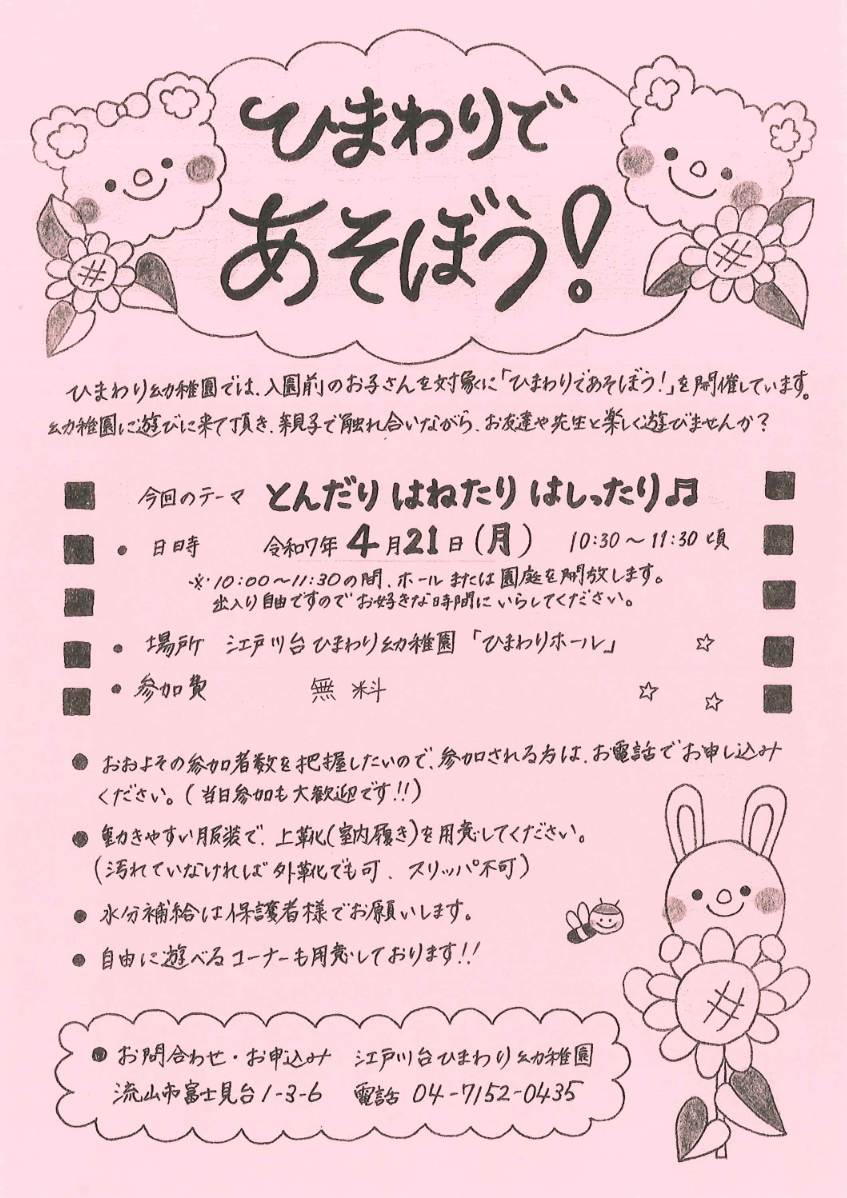 ひまわりで
あそぼう!
ひまわり幼稚園では、入園前のお子さんを対象に「ひまわりであそぼう!」を開催しています。
幼稚園に遊びに来て頂き、親子で触れ合いながら、お友達や先生と楽しく遊びませんか?
今回のテーマ とんだり はねたり はしったり♫
• 日時 令和7年 4月21日(月) 10:30～11:30頃
※10:00～11:30の間、ホールまたは園庭を開放します。
出入り自由ですのでお好きな時間にいらしてください。
• 場所 江戸川台ひまわり幼稚園「ひまわりホール」
• 参加費 無料
● おおよその参加者数を把握したいので、参加される方は、お電話でお申し込み
ください。(当日参加も大歓迎です!!)
● 動きやすい服装で、上靴(室内履き)を用意してください。
(汚れていなければ外靴でも可、スリッパ不可)
● 水分補給は保護者様でお願いします。
● 自由に遊べるコーナーも用意しております!!
● お問合わせ・お申込み 江戸川台ひまわり幼稚園
流山市富士見台1-3-6 電話 04-7152-0435